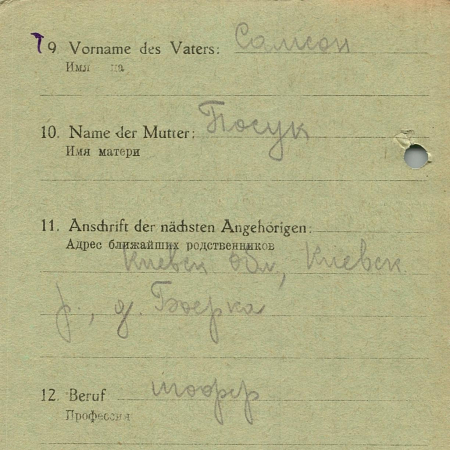 9. Vorname des Vaters: Самсон
Имя
10. Name der Mutter: Посук
Имя матери
11. Anschrift der nächsten Angehörigen:
Адрес ближайших родственников
Киевск обл, Киевск
р., д. Боерка
12. Beruf шофер
Профессия